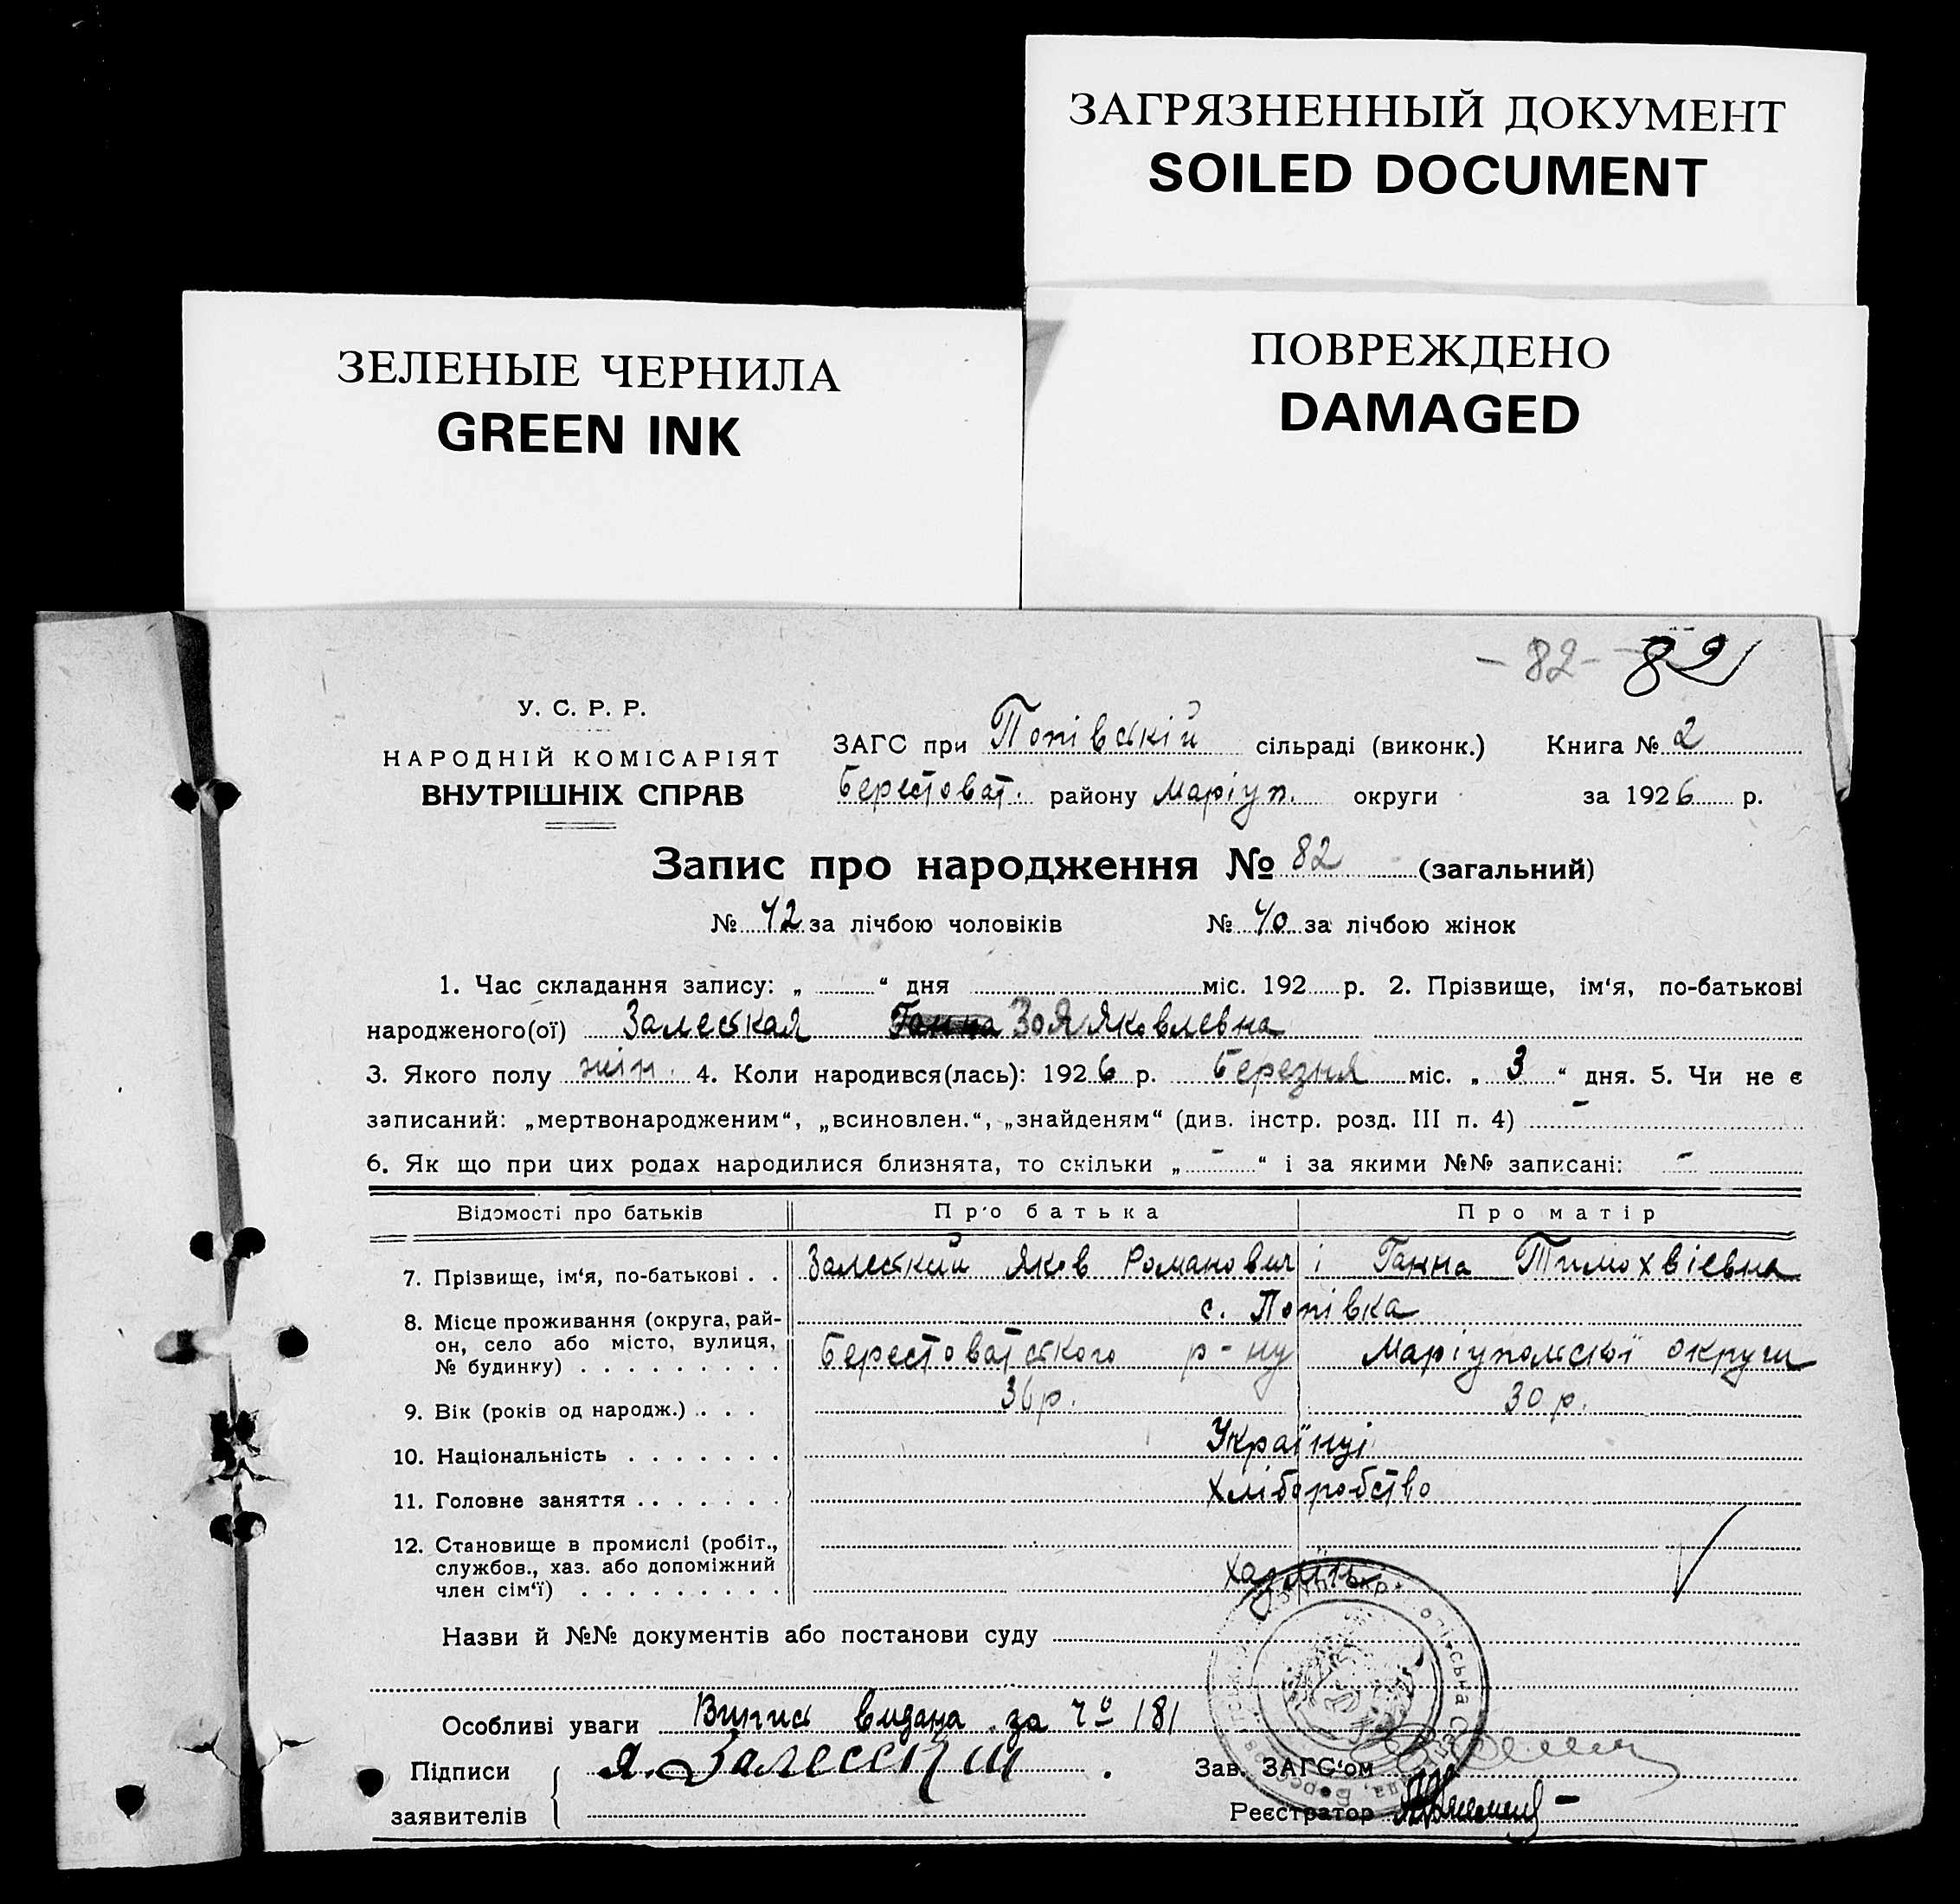 ЗАГРЯЗНЕННЫЙ ДОКУМЕНТ
SOILED DOCUMENT
ЗЕЛЕНЫЕ ЧЕРНИЛА
GREEN INK
ПОВРЕЖДЕНО
DAMAGED
- 82 - 82
У. С. Р. Р.
НАРОДНІЙ КОМІСАРІЯТ
ВНУТРІШНІХ СПРАВ
ЗАГС при Попівській сільраді (виконк.) Книга № 2
Берестоват. району Маріуп. округи за 1926 р.
Запис про народження № 82 (загальний)
№ 42 за лічбою чоловіків № 40 за лічбою жінок
1. Час складання запису: „ “ дня міс. 192 р. 2. Прізвище, ім‘я, по-батькові
народженого(ої) Залеская Ганна Зоя Яковлевна
3. Якого полу жін. 4. Коли народився(лась): 1926 р. Березня міс. „ 3 “ дня. 5. Чи не є
записаний: „мертвонародженим“, „всиновлен.“, „знайденям“ (див. інстр. розд. III п. 4) -
6. Як що при цих родах народилися близнята, то скільки „ - “ і за якими №№ записані: -
Відомості про батьків Про батька Про матір
7. Прізвище, ім‘я, по-батькові . . Залеский Яков Романович і Ганна Тимохвіевна
8. Місце проживання (округа, рай-
он, село або місто, вулиця,
№ будинку) . . . . . . . . .
с. Попівка
Берестоватського р-ну Маріупольскої округи
9. Вік (років од народж.) . . . 36 р. 30 р.
10. Національність . . . . . . . Українці
11. Головне заняття . . . . . . . Хліборобство
12. Становище в промислі (робіт.,
службов., хаз. або допоміжний
член сім‘ї) . . . . . . . . .
Назви й №№ документів або постанови суду
Особливі уваги Випись видана за № 181
Підписи
заявителів
Я. Залесский
Зав. ЗАГС‘ом
Реєстратор